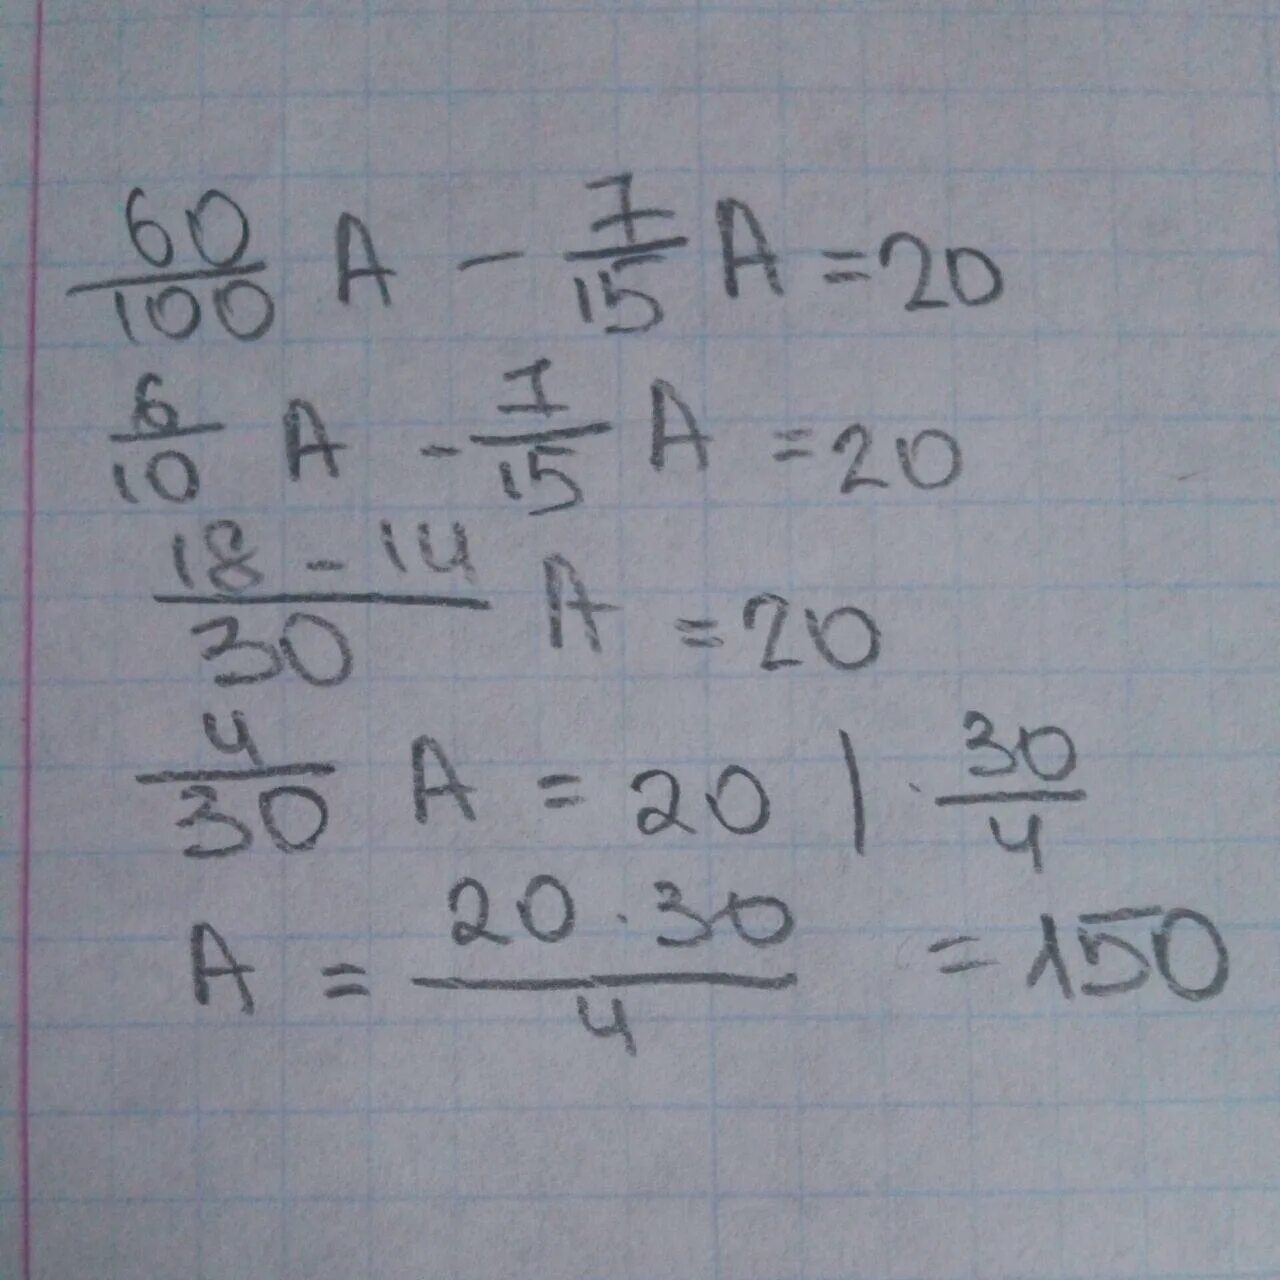 60/100 A - 7/15 A = 20
6/10 A - 7/15 A = 20
18 - 14/30 A = 20
4/30 A = 20 | · 30/4
A = 20 · 30/4 = 150